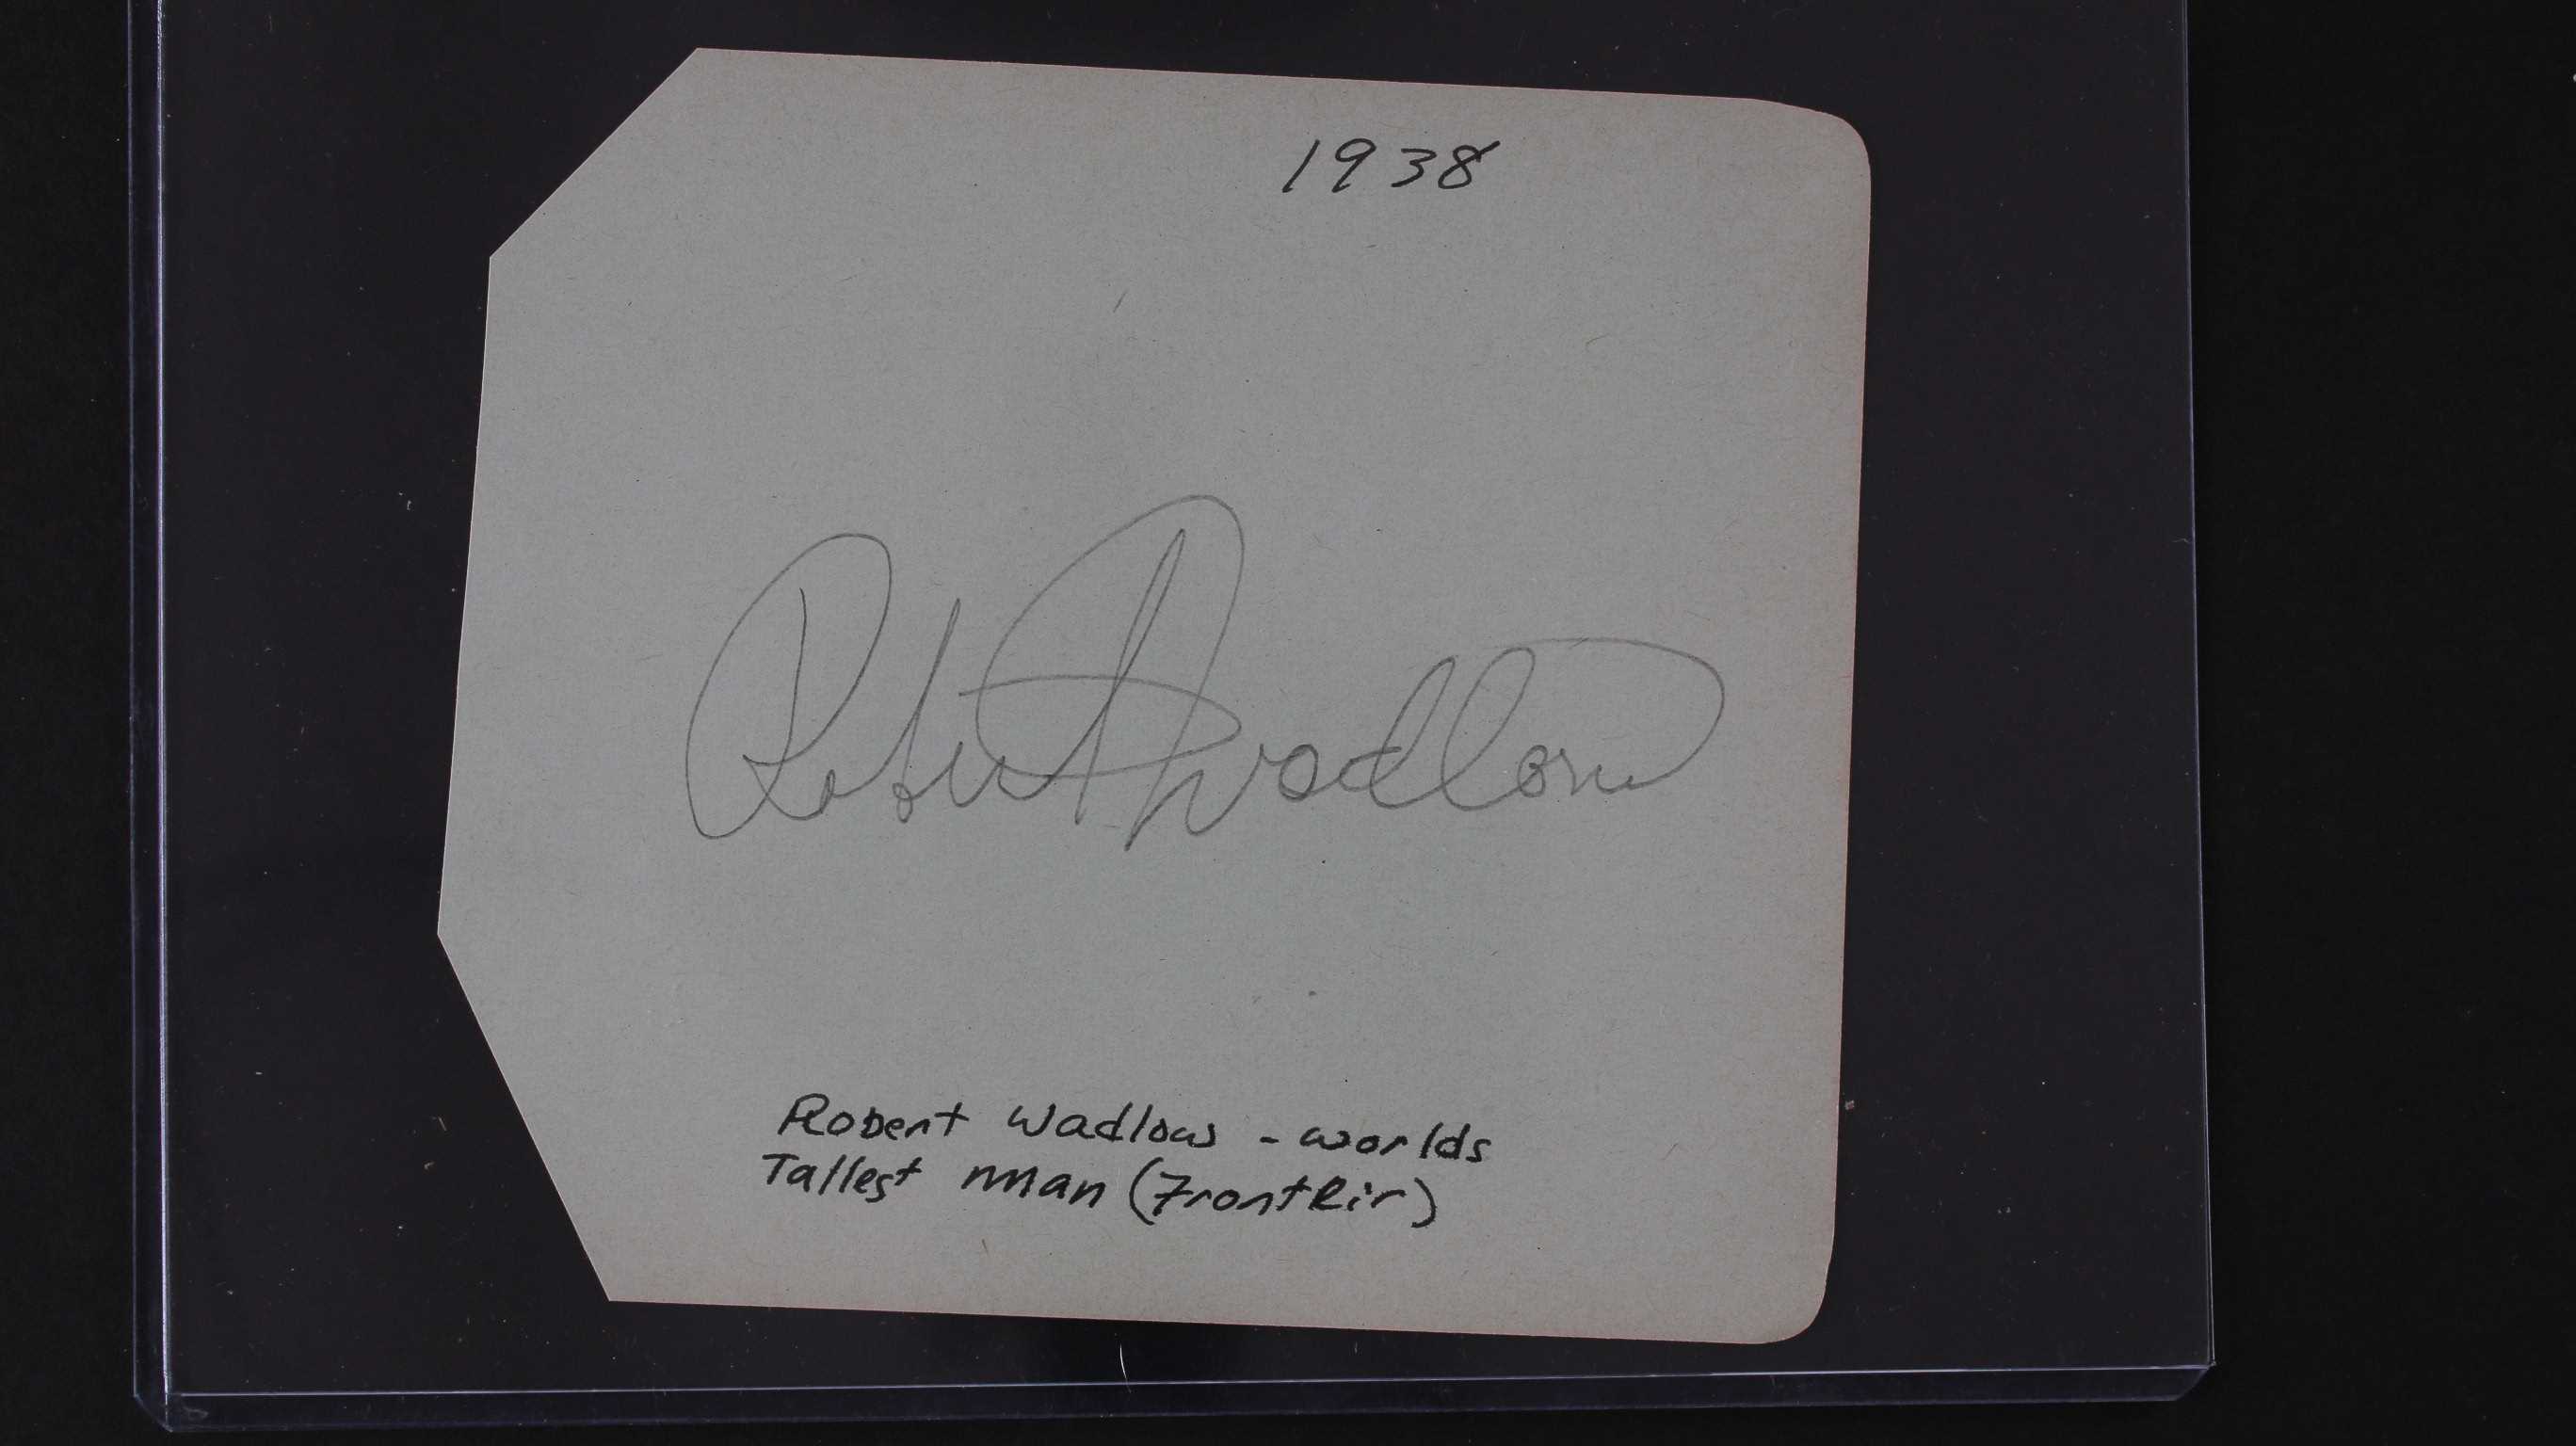 1938
Robert Wadlow
Robert Wadlow - worlds
Tallest Man (FrontRir)